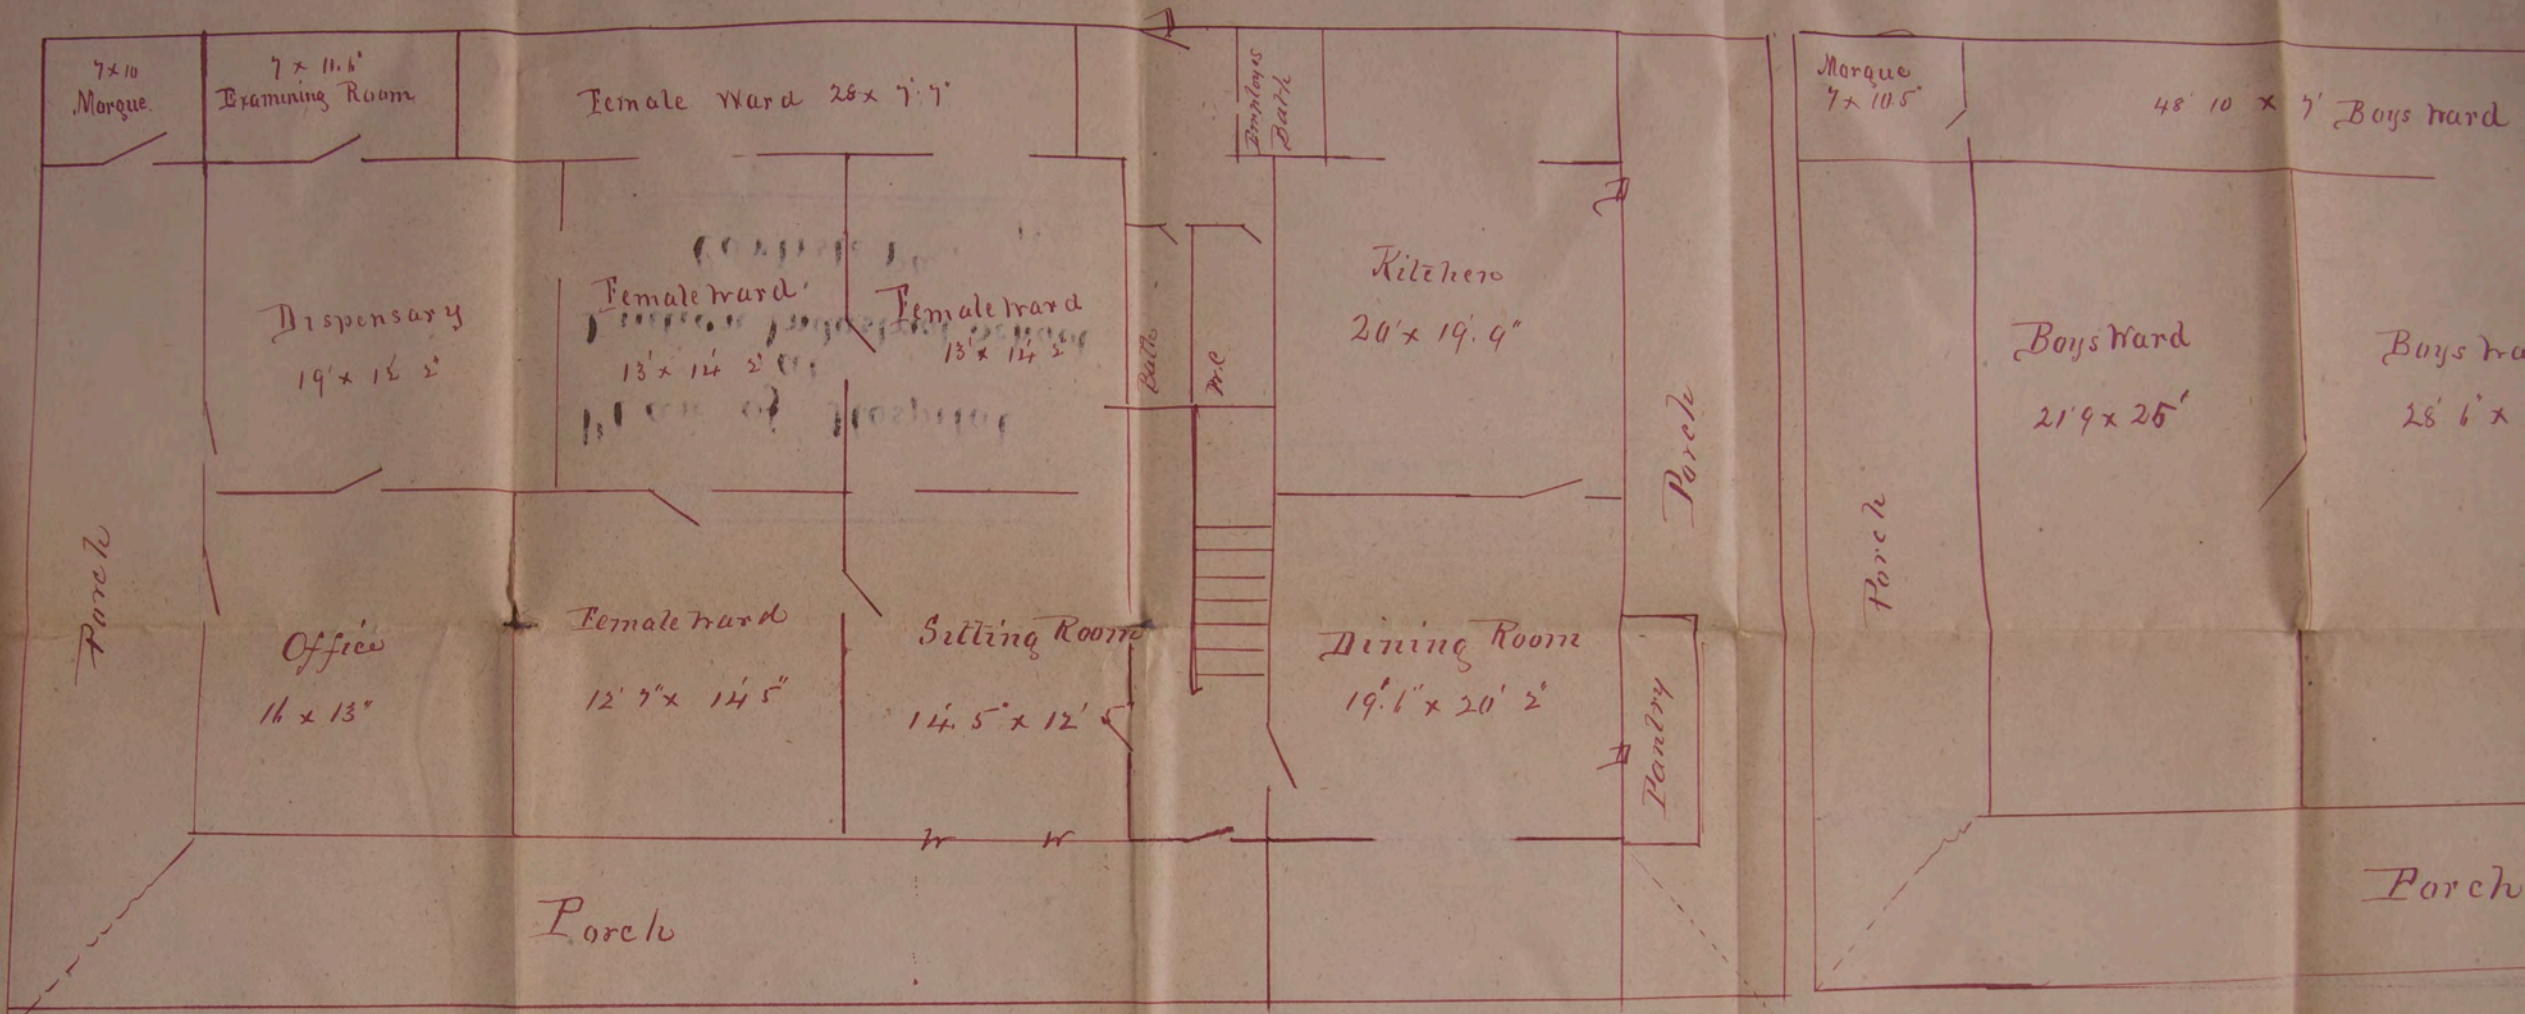 7 x 10
Morgue.
7 x 11.6"
Examining Room
Female Ward 28 x 7'.7"
Employes
Bath
Morgue
7 x 10.5"
48' 10 x 7' Boys Ward
Dispensary
Female Ward
13' x 14' 2"
Female Ward
13' x 14' 2"
Bath
W.C
Kitchen
20' x 19'. 9"
Porch
Porch
Boys Ward
21' 9 x 25'
Boys
28' 6" x
Plan of Hospital
Porch
Office
16 x 13"
Female Ward
12' 7" x 14' 5"
Sitting Room
14'. 5" x 12' 5"
Dining Room
19'. 6" x 20' 2"
Pantry
W W
Porch
Porch